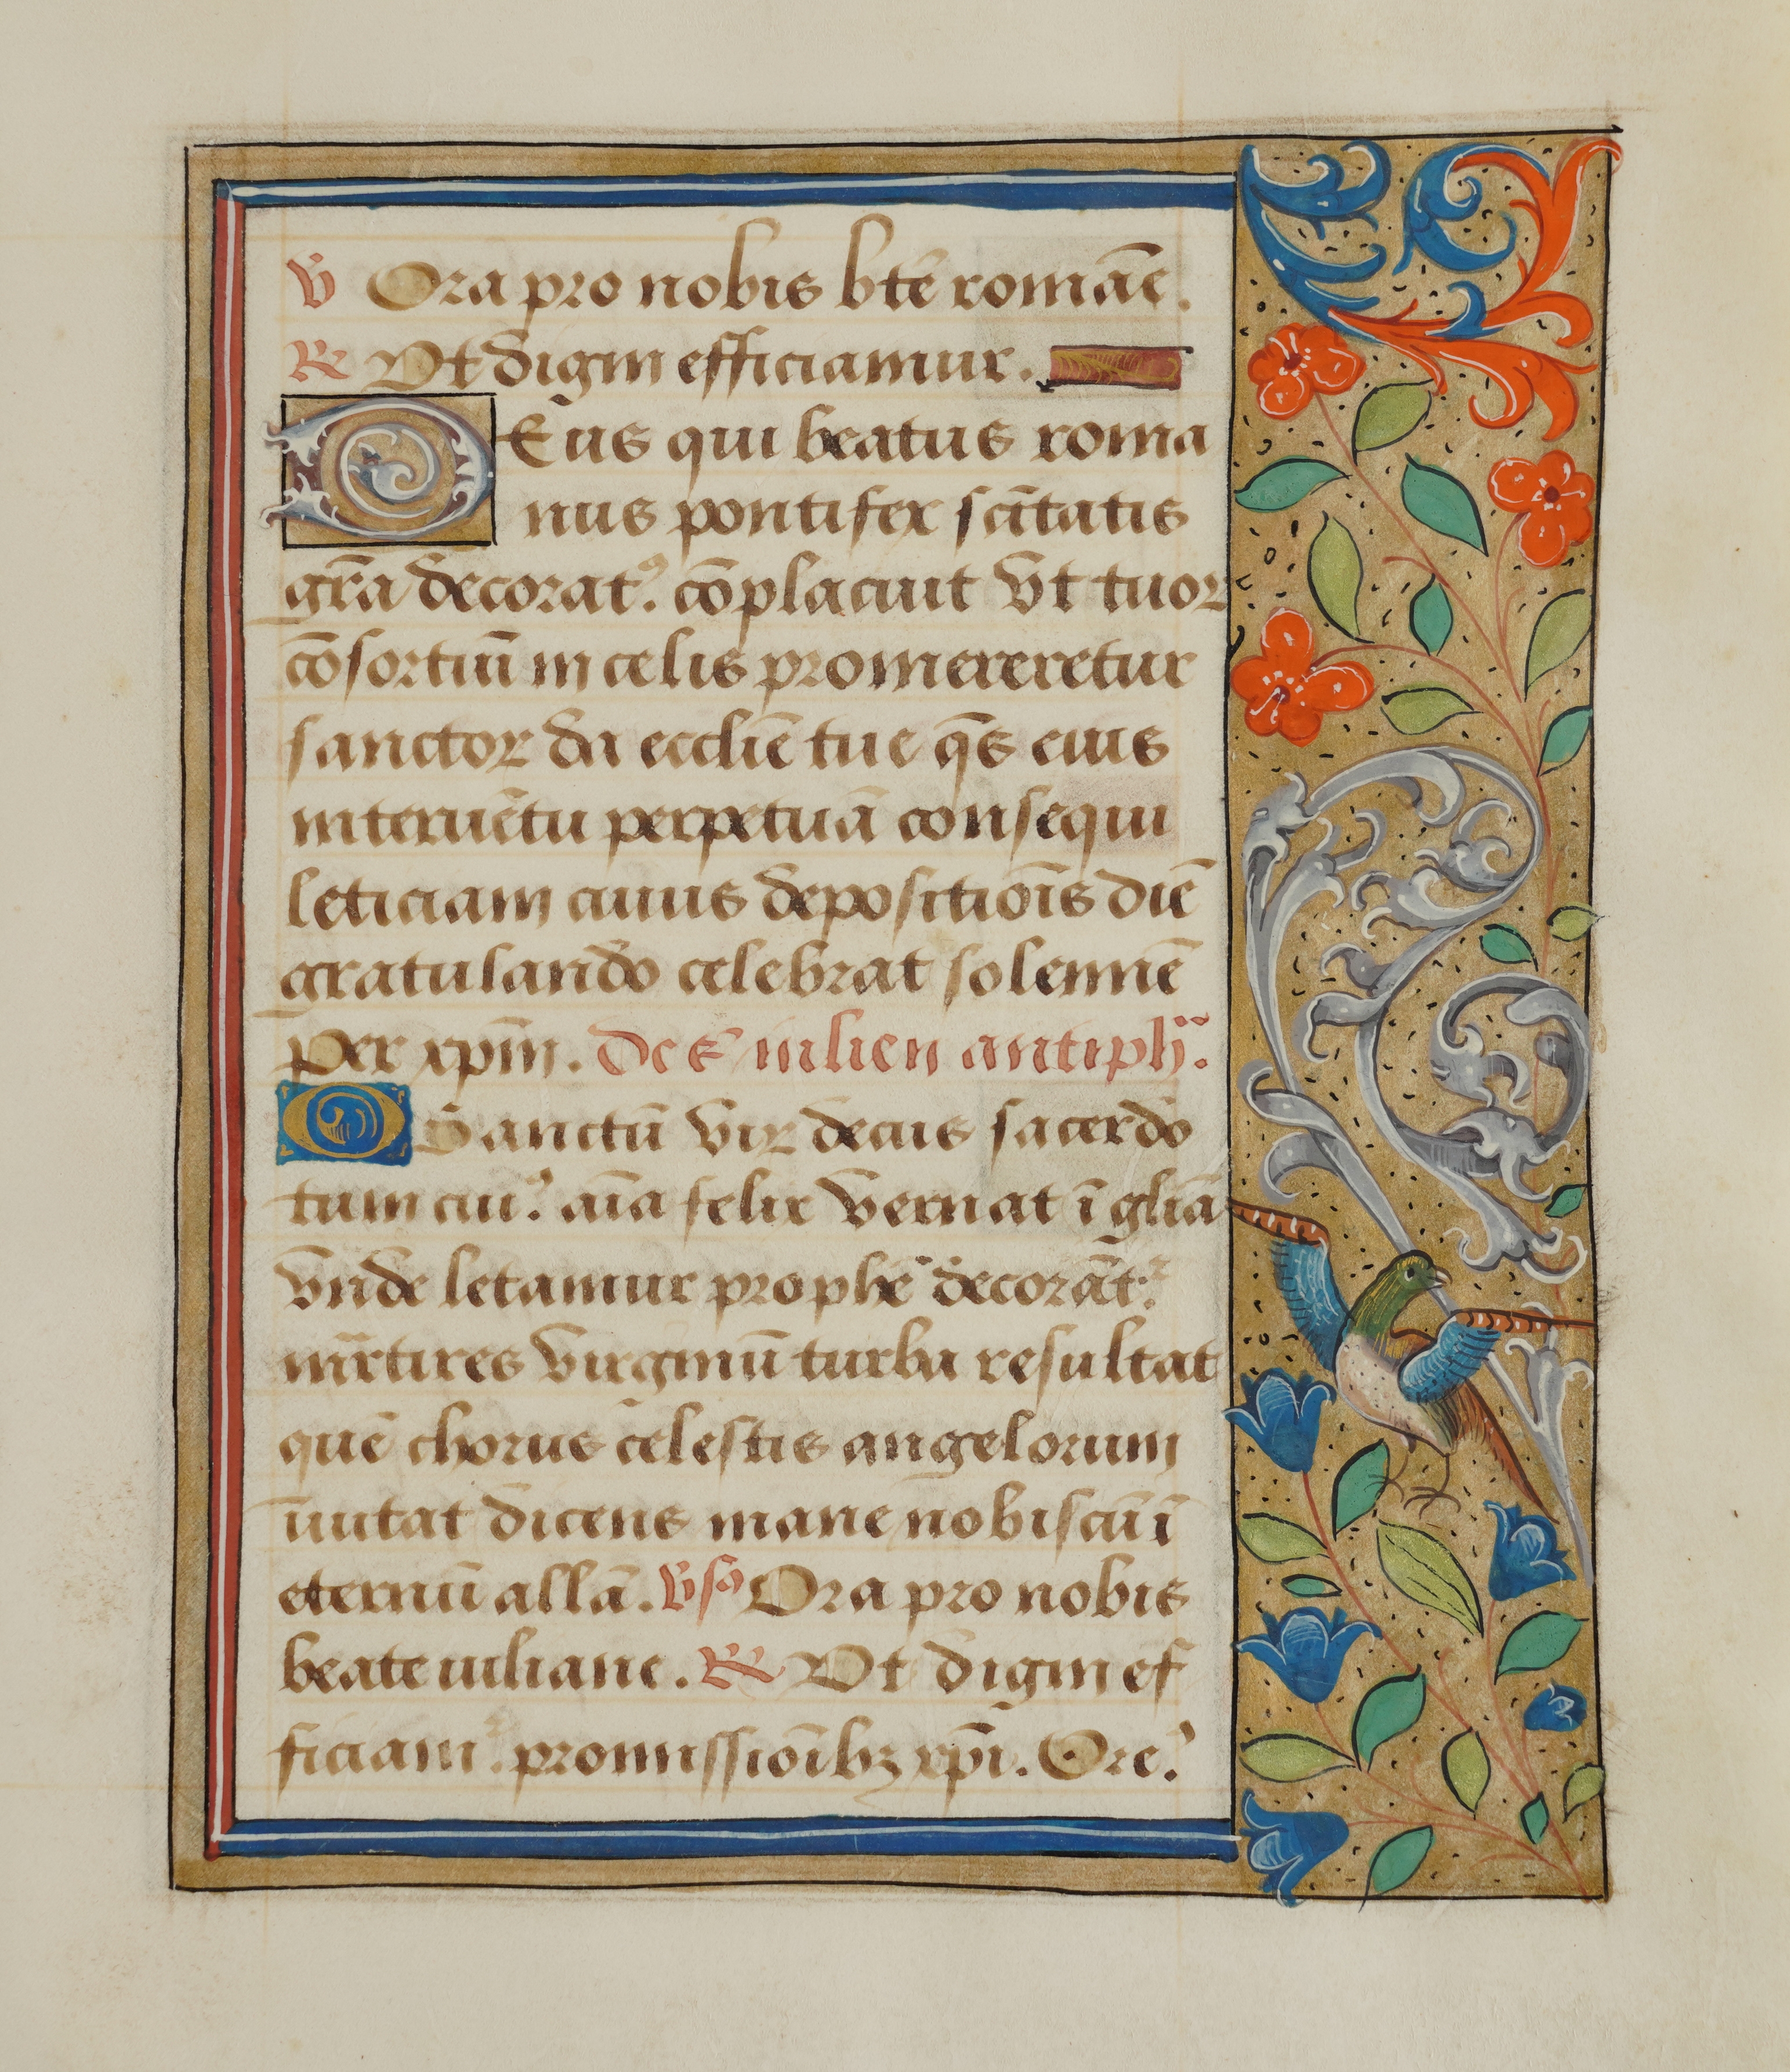 V̄ Ora pro nobis bte᷑ romāe.
R̄ Vt digni efficiamur.
DEus qui beatus roma
nus pontifex sc̄itatis
gr̄a decoratꝰ. cōplacuit vt tuoꝝ
cōsortiū in celis promereretur
sanctoꝝ da ecclie᷑ tue q̄s eius
interuētu perpetuā consequi
leticiam cuius depositiōis diē
gratulando celebrat solennē
per xpm̄. De s᷑ iulien antiph᷑.
O Sanctū vir decus sacerdo
tum cuiꝰ. aīa felix vernat ī gliā
vnde letamur prophe᷑ decorāt᷑
mr̄tires virginū turba resultat
quē chorus celestis angelorum
īuitat dicens mane nobiscū ī
eternū allā. V̄sꝰ Ora pro nobis
beate iuliane. R̄ Vt digni ef
ficiam᷑. promissiōibꝫ xp̄i. Ore᷑.